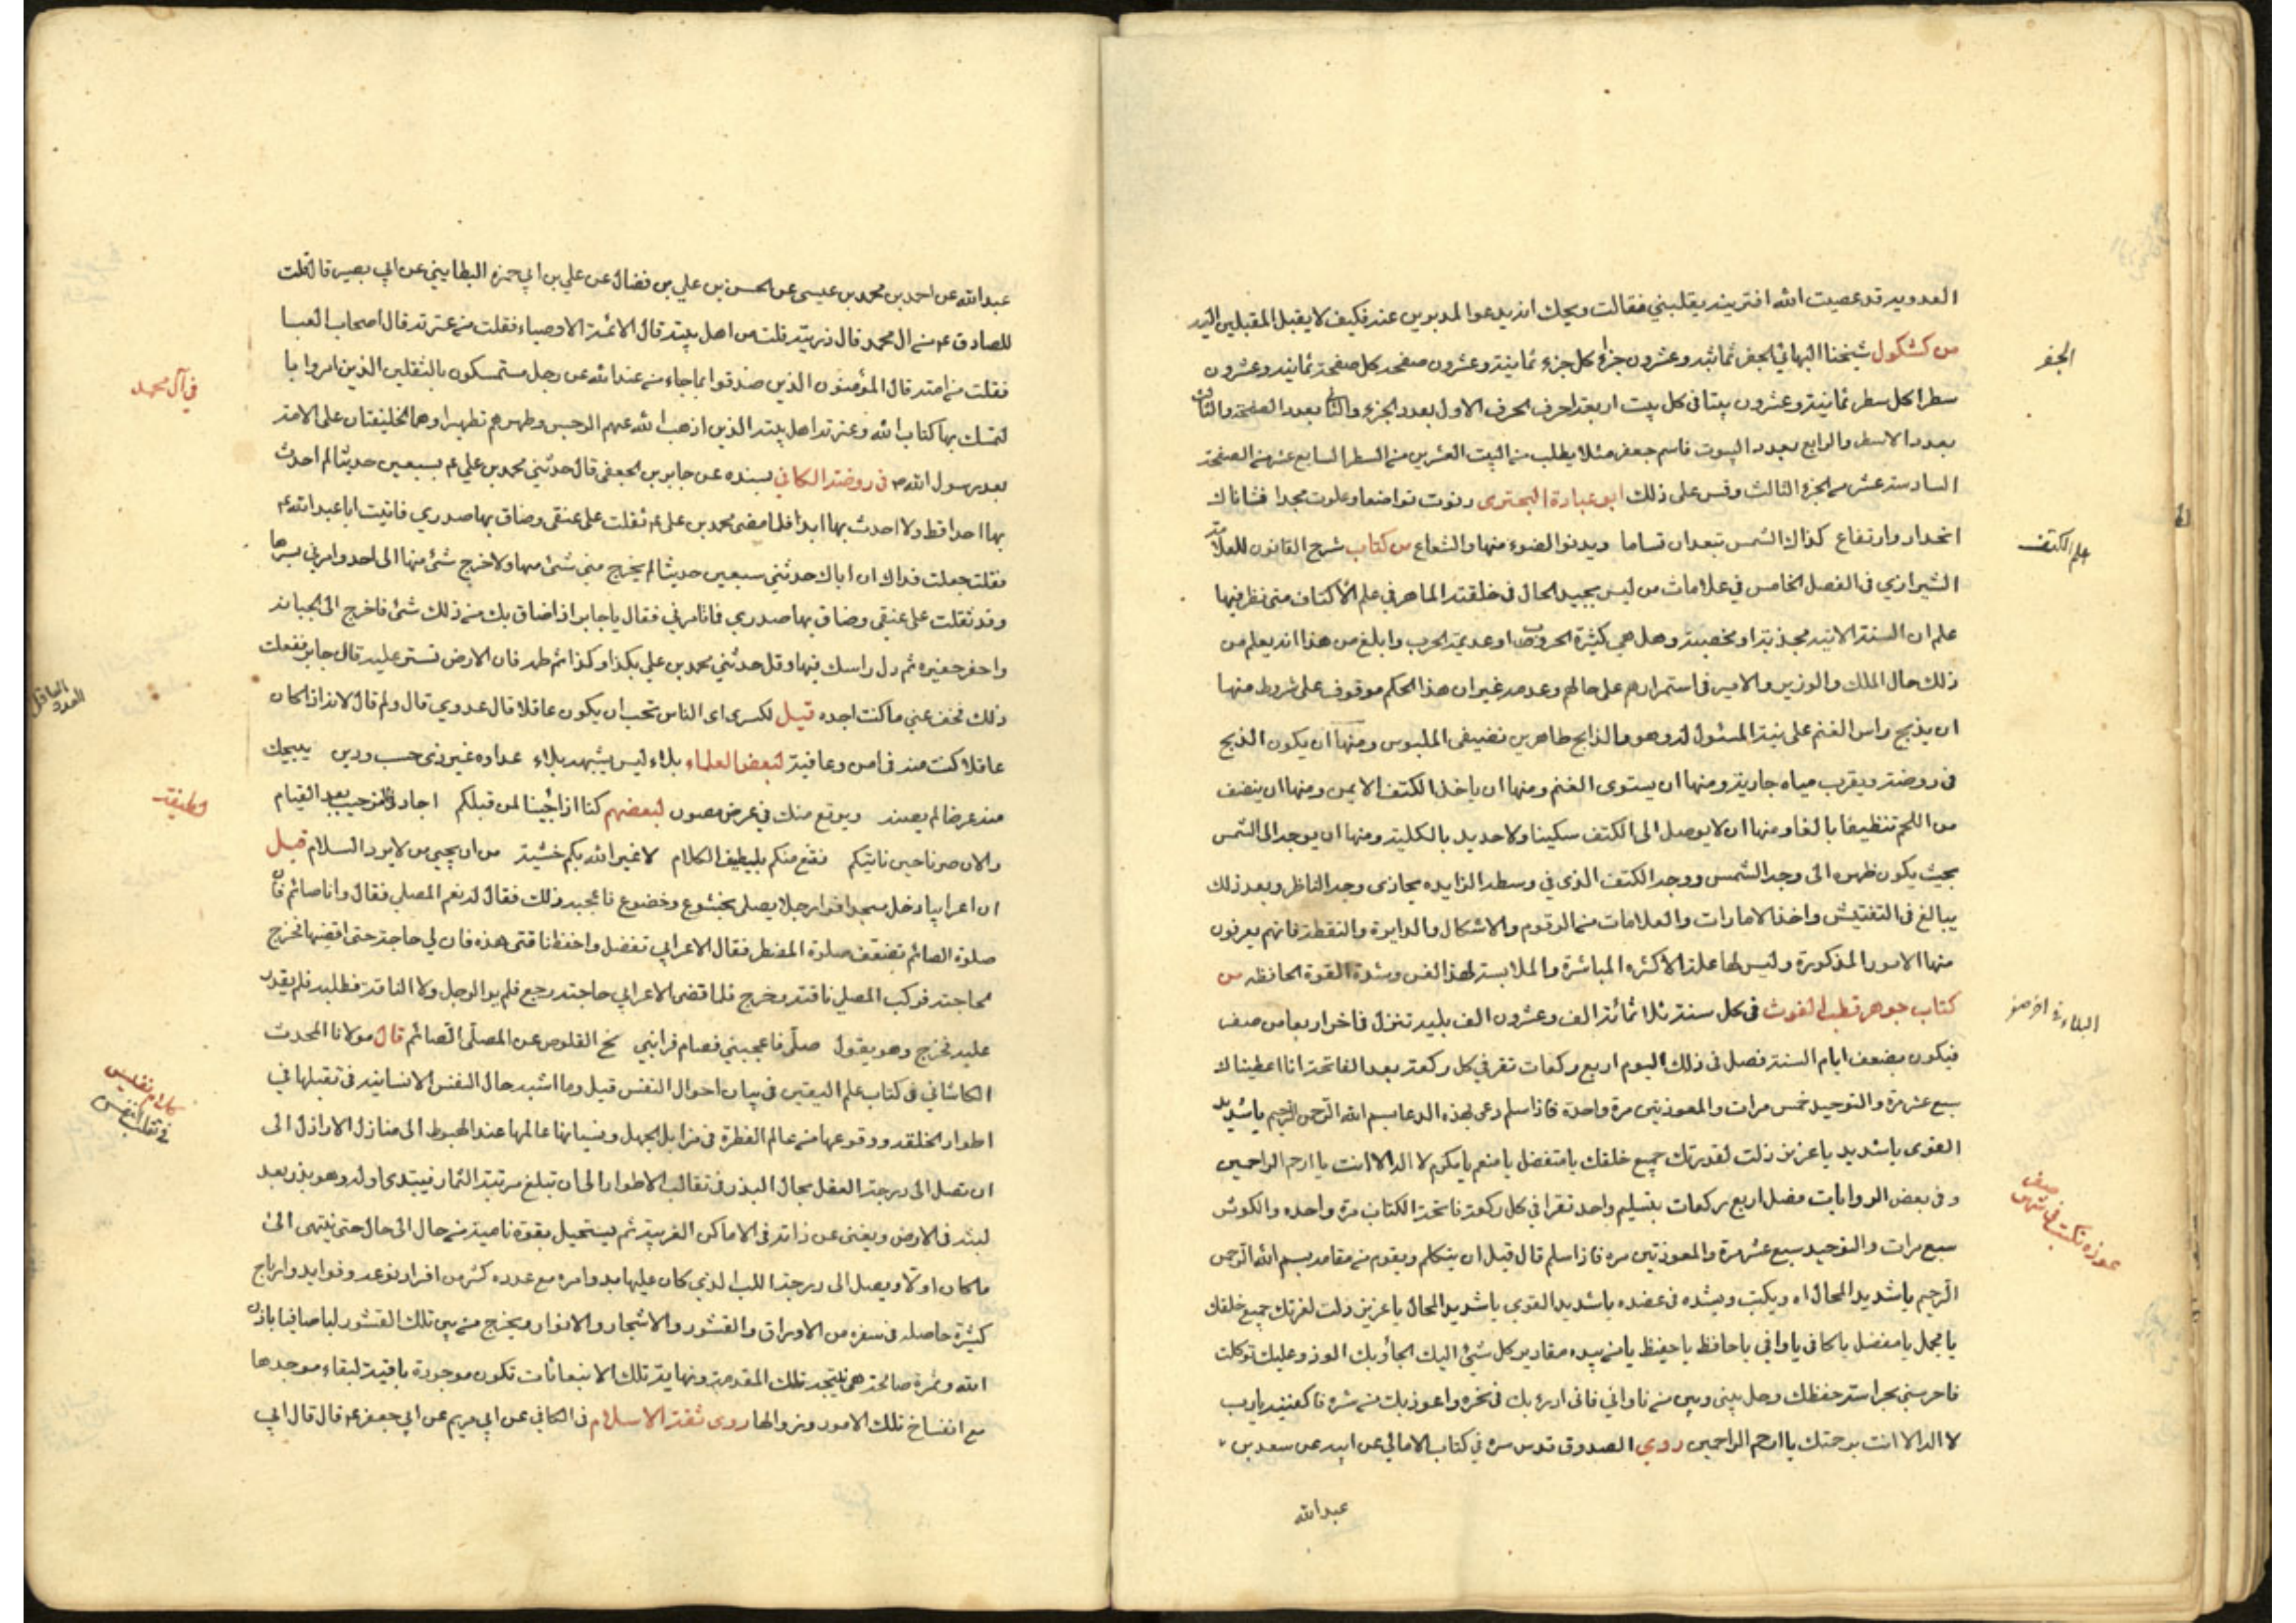 العدو يد قد عصيت الله افترينه يقلبني فقالت ويحك انه يدعوا المدبرين عنه فكيف لا يقبل المقبلين اليه
من كشكول شيخنا البهائي الجفر ثمانية وعشرون جزاء كل جزء ثمانية وعشرون صفحة كل صفحة ثمانية وعشرون
الجفر
سطرا كل سطر ثمانية وعشرون بيتا في كل بيت اربعة احرف الحرف الاول بعدد الجزء والثاني بعدد الصفحة والثالث
بعدد الاسطر والرابع بعدد البيوت فاسم جعفر مثلا يطلب من البيت العشرين من السطر السابع عشر من الصفحة
السادسة عشر من الجزء الثالث وقس على ذلك ابو عبادة البحتري دنوت تواضعا وعلوت مجدا فشاناك
انحدار وارتفاع كذاك الشمس تبعد ان تساما ويدنو الضوء منها والشعاع من كتاب شرح القانون للعلامة
علم الكتف
الشيرازي في الفصل الخامس في علامات من ليس بجيد الحال في خلقته الماهر في علم الأكتاف متى نظر فيها
علم ان السنة الاتية مجدبة او مخصبة وهل هي كثيرة الحروب او عديمة الحرب وابلغ من هذا انه يعلم من
ذلك حال الملك والوزير والامير في استمرارهم على حالهم وعدمه غير ان هذا الحكم موقوف على شروط منها
ان يذبح راس الغنم على نية المسئول له وهو والذابح طاهرين نضيفي الملبوس ومنها ان يكون الذبح
في روضة وبقرب مياه جارية ومنها ان يستوى الغنم ومنها ان ياخذ الكتف الايمن ومنها ان ينضف
من اللحم تنظيفا بالغا ومنها ان لا يوصل الى الكتف سكينا ولا حديد بالكلية ومنها ان يوجه الى الشمس
بحيث يكون ظهره الى وجه الشمس ووجه الكتف الذي في وسطه الزايده يحاذى وجه الناظر وبعد ذلك
يبالغ في التفتيش واخذ الامارات والعلامات من الرقوم والاشكال والدايرة والنقطة فانهم يعرفون
منها الامور المذكورة وليس لها علة الا كثره المباشرة والملابسة لهذا الفن وشدة القوة الحافظه من
كتاب جوهر قطب الغوث في كل سنة ثلاثمائة الف وعشرون الف بلية تنزل في اخر اربعا من صفر
البلاء في اخر صفر
فيكون بضعف ايام السنة فصل في ذلك اليوم اربع ركعات تقر في كل ركعة بعد الفاتحة انا اعطيناك
سبع عشر مرة والتوحيد خمس مرات والمعوذتين مرة واحدة فاذا سلم دعى بهذه الدعا بسم الله الرحمن الرحيم يا شديد
القوى يا شديد يا عزيز ذلت لقدرتك جميع خلقك يا متفضل يا منعم يا مكرم لا اله الا انت يا ارحم الراحمين
وفي بعض الروايات فصل اربع ركعات بتسليم واحد تقرا في كل ركعة فاتحة الكتاب مرة واحده والكوثر
عوذه تكتب في شهر صفر
سبع مرات والتوحيد سبع عشر مرة والمعوذتين مره فاذا سلم قال قبل ان يتكلم ويقوم من مقامه بسم الله الرحمن
الرحيم يا شديد المحال اه ويكتب ويشده في عضده يا شديد القوي يا شديد المحال يا عزيز ذلت لعزتك جميع خلقك
يا مجمل يا مفضل يا كافي يا وافي يا حافظ يا حفيظ يا من بيده مقادير كل شئ اليك الجأ وبك الوذ وعليك توكلت
فاحرسني بحراسة حفظك وحل بيني وبين من ناواني فاني ادرء بك في نحره واعوذ بك من شره فاكفينه يا رب
لا اله الا انت برحمتك يا ارحم الراحمين روى الصدوق قدس سره في كتاب الامالي عن ابيه عن سعد بن
عبد الله
عبد الله عن احمد بن محمد بن عيسى عن الحسن بن علي بن فضال عن علي بن ابي حمزه البطايني عن ابي بصير قال قلت
للصادق ع من ال محمد قال ذريته قلت من اهل بيته قال الائمة الاوصياء فقلت من عترته قال اصحاب العبا
فقلت من امته قال المؤمنون الذين صدقوا بما جاء من عند الله عز وجل مستمسكون بالثقلين الذين امروا با
في آل محمد
لتمسك بها كتاب الله وعترته اهل بيته الذين اذهب الله عنهم الرجس وطهرهم تطهيرا وهما الخليفتان على الامة
بعد رسول الله ص في روضة الكافي بسنده عن جابر بن الجعفي قال حدثني محمد بن علي ع بسبعين حديثا لم احدث
بها احدا قط ولا احدث بها ابدا فلما مضى محمد بن علي ع ثقلت على عنقي وضاق بها صدري فاتيت ابا عبد الله ع
فقلت جعلت فداك ان اباك حدثني سبعين حديثا لم يخرج مني شئ منها ولا خرج شئ منها الى احد وامرني بسرها
وقد ثقلت على عنقي وضاق بها صدري فما تامرني فقال يا جابر اذا ضاق بك من ذلك شئ فاخرج الى الجبانة
واحفر حفيره ثم دل راسك فيها وقل حدثني محمد بن علي بكذا وكذا ثم طمه فان الارض تستر عليه قال جابر ففعلت
ذلك فخف عني ما كنت اجده قيل لكسرى اى الناس تحب ان يكون عاقلا قال عدوي قال ولم قال لانه اذا كان
العدو العاقل
عاقلا كنت منه في امن وعافية لبعض العلماء بلاء ليس يشبهه بلاء عداوه غير ذى حسب ودين يبيحك
منه عرضا لم يصنه ويرتع منك في عرض مصون لبعضهم كنا اذا جئنا لمن قبلكم اجاد في الترحيب بعد القيام
لطيفة
والان صرنا حين ناتيكم نقنع منكم بلطيف الكلام لا غير الله بكم خشية من ان يجيئ من لا يرد السلام قيل
ان اعرابيا دخل مسجدا فراى رجلا يصلى بخشوع وخضوع فاعجبه ذلك فقال له نعم المصلي فقال وانا صائم فان
صلوة الصائم تضعف صلوة المفطر فقال الاعرابي تفضل واحفظ ناقتى هذه فان لي حاجة حتى اقضيها فخرج
لحاجته فركب المصلي ناقته وخرج فلما قضى الاعرابي حاجته رجع فلم ير الرجل ولا الناقة فطلبه فلم يقدر
عليه فخرج وهو يقول صلى فاعجبني فصام فرابني نح القلوص عن المصلي الصائم قال مولانا المحدث
الكاشاني في كتاب علم اليقين في بيان احوال النفس قيل وما اشبه حال النفس الانسانية في تقبلها في
كلام نفيس في تقلب النفس
اطوار الخلقة ووقوعها من عالم الفطرة في مزابل الجهل ونسيانها عالمها عند الهبوط الى منازل الاراذل الى
ان تصل الى درجة العقل بحال البذر في تقالب الاطوار الى ان تبلغ مرتبة الثمار فيبتدى اوله وهو بذر بعد
لبث في الارض ويفنى عن ذاته في الاماكن الغريبة ثم يستحيل بقوة نامية من حال الى حال حتى ينتهى الى
ما كان اولا ويصل الى درجة اللب الذي كان عليها بدو امره مع عدده كثير من افراد نوعه وفوايد وارباح
كثيرة حاصله في سفره من الاوراق والقشور والاشجار والانوار ويخرج من بين تلك القشور لبا صافيا باذن
الله وثمرة صالحة هي نتيجة تلك المقدمة ونهاية تلك الانبعاثات تكون موجودة باقية لبقاء موجدها
مع انفساخ تلك الامور وزوالها روى ثقة الاسلام في الكافي عن ابي مريم عن ابي جعفر ع قال قال ابي